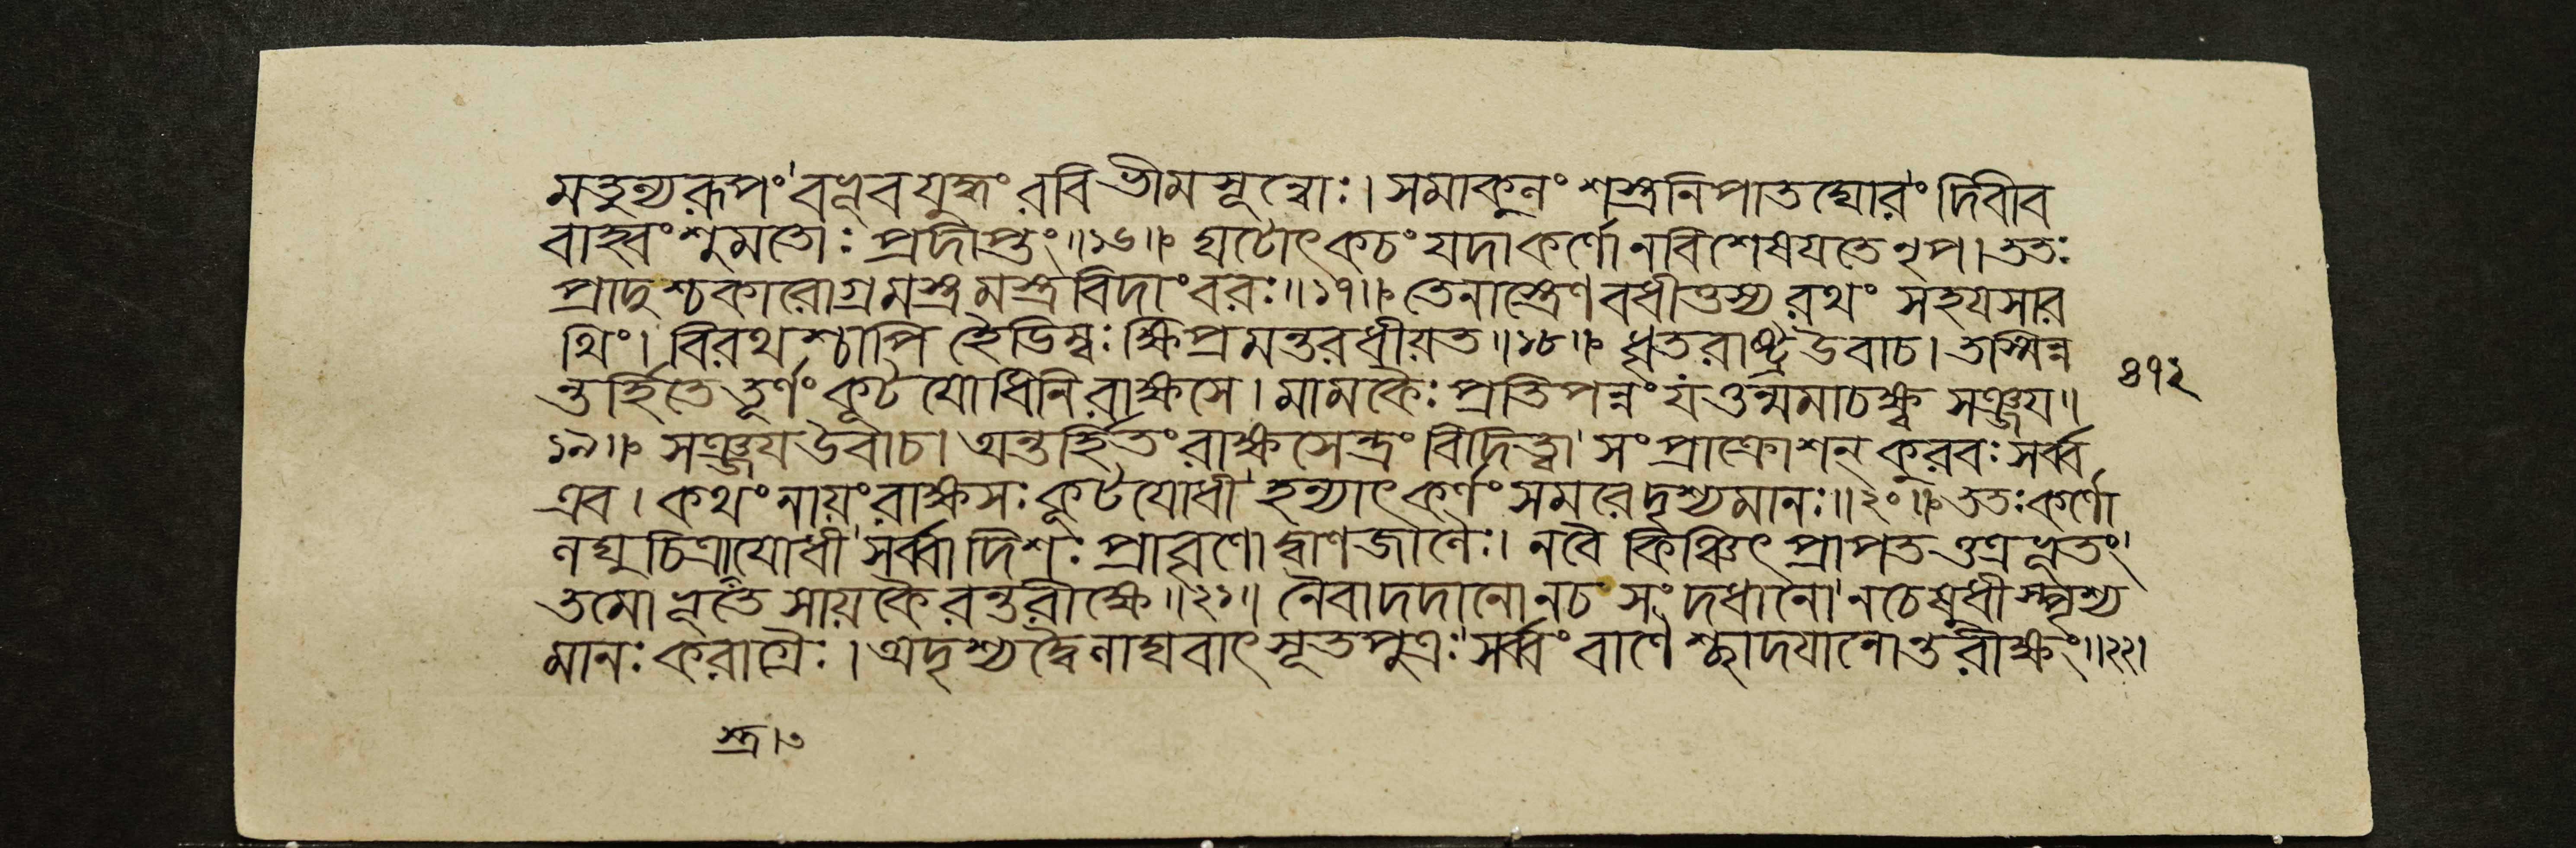 মতুল্যরূপং বভূব যুদ্ধং রবিভীমসূন্বোঃ। সমাকুলং শস্ত্রনিপাতঘোরং দিবীব
বাহ্বংশুমতোঃ প্রদীপ্তং॥১৬॥ ঘটোৎকচং যদা কর্ণো নবিশেষযতে নৃপ। ততঃ
প্রাদুশ্চকারোগ্রমস্ত্রমস্ত্রবিদাংবরঃ॥১৭॥ তেনাস্ত্রেণবধীত্তস্য রথং সহযসার
থিং। বিরথশ্চাপি হৈডিম্বঃ ক্ষিপ্রমন্তরধীয়ত॥১৮॥ ধৃতরাষ্ট্র উবাচ। তস্মিন্ন
ন্তর্হিতে তূর্ণং কূটযোধিনি রাক্ষসে। মামকৈঃ প্রতিপন্নং যত্তন্মমাচক্ষ্ব সঞ্জয॥
১৯॥ সঞ্জয উবাচ। অন্তর্হিতং রাক্ষসেন্দ্রং বিদিত্বা সংপ্রাক্রোশন্ কুরবঃ সর্ব্ব
এব। কথং নায়ং রাক্ষসঃ কূটযোধী হন্যাৎ কর্ণং সমরেদৃশ্যমানঃ॥২০॥ ততঃ কর্ণো
লঘুচিত্রাযোধী সর্ব্বা দিশঃ প্রাবৃণোদ্বাণজালৈঃ। নবৈ কিঞ্চিৎ প্রাপতত্তত্র ভূতং
তমোভূতে সায়কৈরন্তরীক্ষে॥২১॥ নৈবাদদানো নচ সংদধানো নচেষুধী স্পৃশ্য
মানঃ করাগ্রৈঃ। অদৃশ্যদ্বৈ লাঘবাৎ সূতপুত্রঃ সর্ব্বং বাণৈশ্ছাদযানোন্তরীক্ষং॥২২।
৩৭২